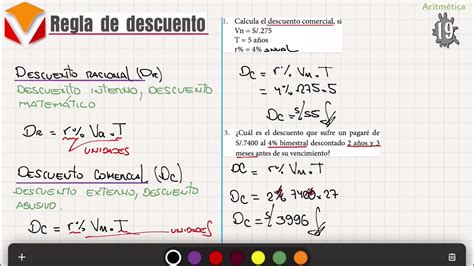 Regla de descuento
Aritmética
19
DESCUENTO RACIONAL (DR)
DESCUENTO INTERNO, DESCUENTO
MATEMÁTICO
DR = r% Va . T
UNIDADES
DESCUENTO COMERCIAL (DC)
DESCUENTO EXTERNO, DESCUENTO
ABUSIVO.
DC = r% Vn . T
UNIDADES
1. Calcula el descuento comercial, si
Vn = S/.275
T = 5 años
r% = 4% ANUAL
DC = r% Vn . T
= 4% 275.5
DC = S/55
3. ¿Cuál es el descuento que sufre un pagaré de
S/.7400 al 4% bimestral descontado 2 años y 3
meses antes de su vencimiento?
DC = r% Vn . T
DC = 2% 7400 . 27
DC = S/ 3996